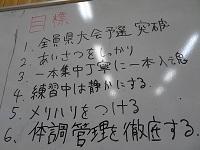 目標
1. 全員県大会予選突破
2. あいさつをしっかり
3. 一本集中丁寧に一本入魂
4. 練習中は静かにする.
5. メリハリをつける
6. 体調管理を徹底する.